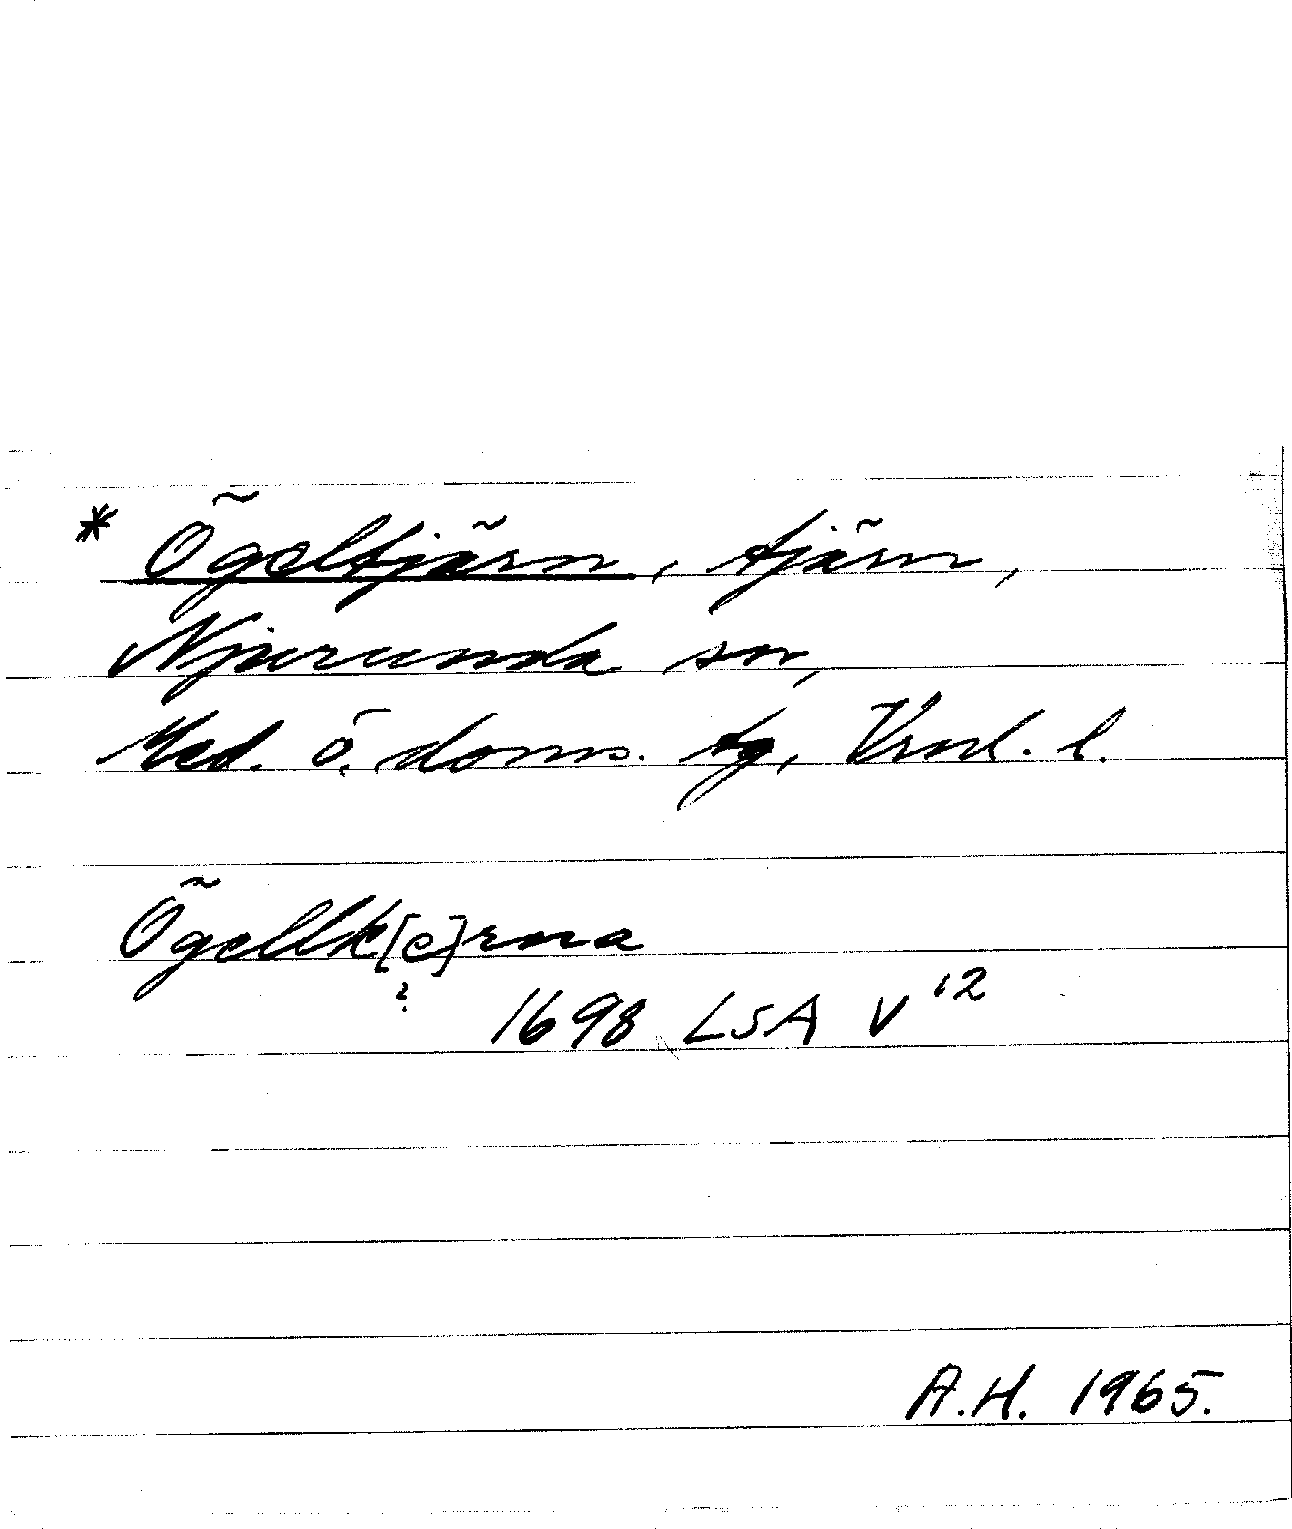 * Ögeltjärn, tjärn,
Njurunda sn,
Med. ö. doms. tg, Vnl. l.
Ögellk[e]rna
?
1698 LSA V 12
A.H. 1965.